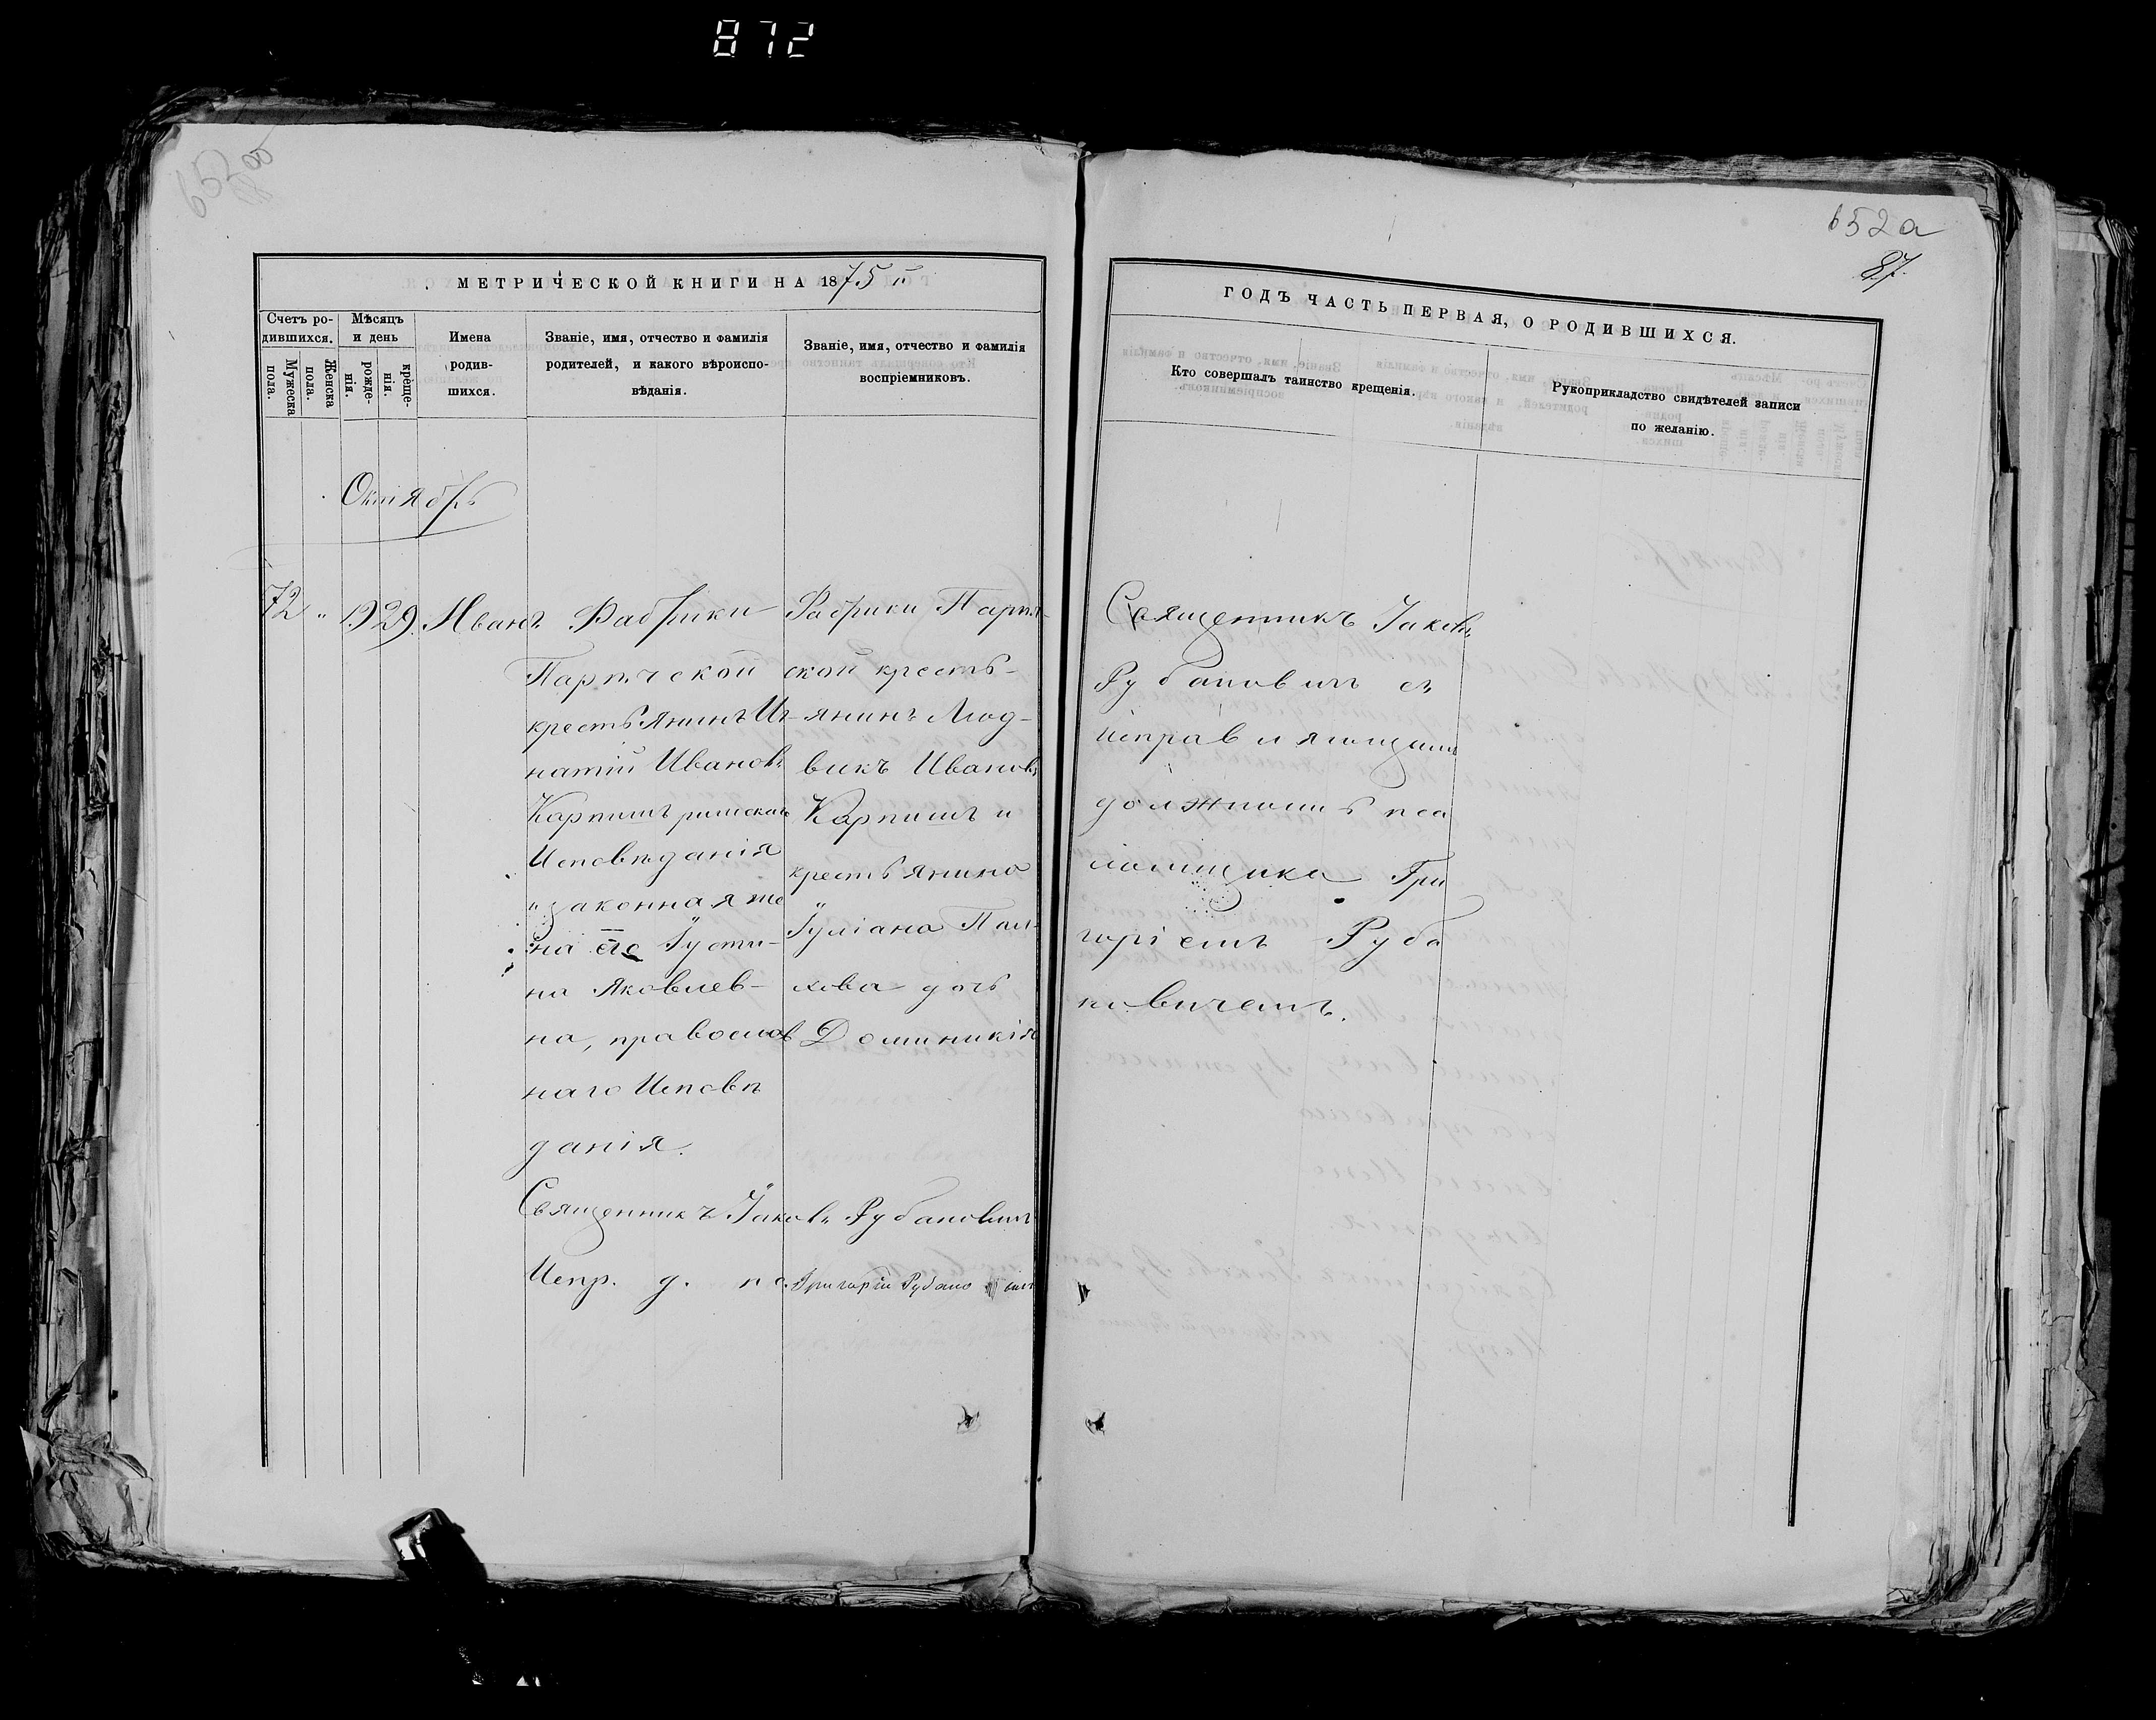 872
652 об
652а
87.
МЕТРИЧЕСКОЙ КНИГИ НА 1875 г.
Счетъ ро-
дившихся.
Мужеска
пола.
Женска
пола.
Мѣсяцъ
и день
рожде-
нія.
креще-
нія.
Имена
родив-
шихся.
Званіе, имя, отчество и фамилія
родителей, и какого вѣроиспо-
вѣданія.
Званіе, имя, отчество и фамилія
воспріемниковъ.
Октябрь
72 " 19 29. Иванъ
Фабрики
Парпчской
крестьянинъ Иг-
натій Ивановъ
Карпишъ римскаго
Исповѣданія
и законная же
на его Іусти-
на Яковлев-
на, православ
наго Исповѣ
данія.
Фабрики Парпч-
ской кресть-
янинъ Люд-
викъ Ивановъ
Карпишъ и
крестьянина
Іуліана
дочь
Доминикія
Священникъ Іаковъ Рубановичъ
Испр. д. пс. Григорій Рубановичъ
ГОДЪ ЧАСТЬ ПЕРВАЯ, О РОДИВШИХСЯ.
Кто совершалъ таинство крещенія.
Рукоприкладство свидѣтелей записи
по желанію.
Священникъ Іаковъ
Рубановичъ съ
исправляющимъ
должность пса
ломщика Гри
горіемъ Руба
новичемъ.